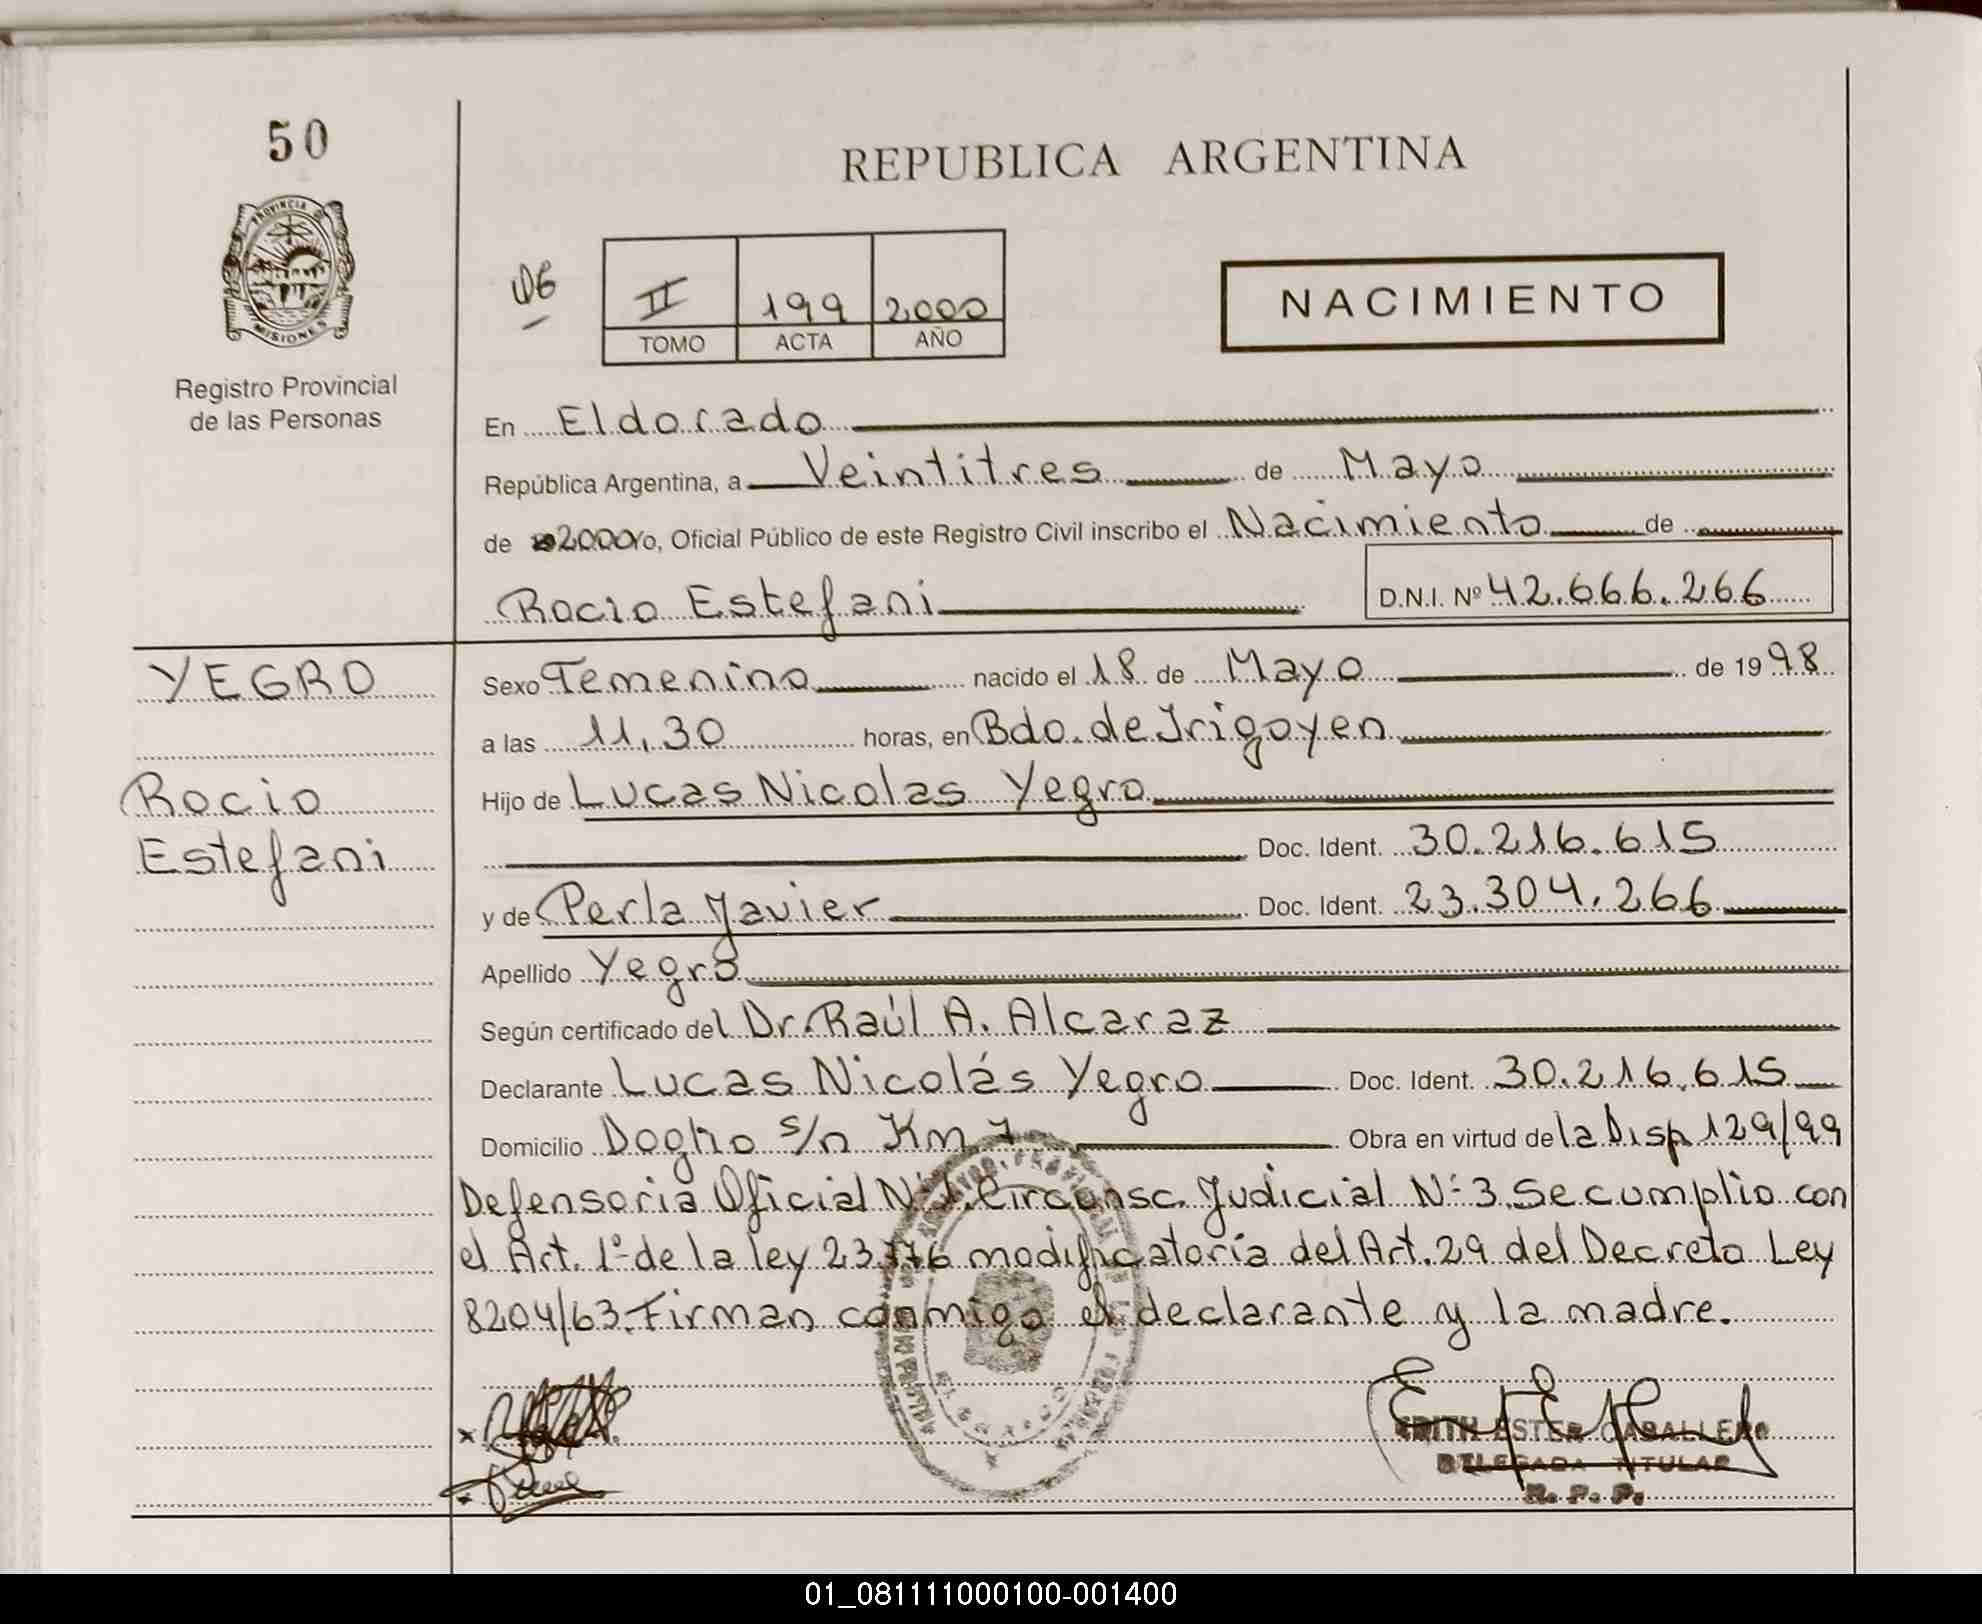 50
REPUBLICA ARGENTINA
PROVINCIA DE
MISIONES
Registro Provincial
de las Personas
06
II 199 2000
TOMO ACTA AÑO
NACIMIENTO
En Eldorado
República Argentina, a Veintitres de Mayo
de 2000 yo, Oficial Público de este Registro Civil inscribo el Nacimiento de
Rocio Estefani D.N.I. Nº 42.666.266
YEGRO
Rocio
Estefani
Sexo Femenino nacido el 18 de Mayo de 1998
a las 11,30 horas, en Bdo. de Irigoyen
Hijo de Lucas Nicolas Yegro
Doc. Ident. 30.216.615
y de Perla Javier Doc. Ident. 23.304.266
Apellido Yegro
Según certificado del Dr. Raúl A. Alcaraz
Declarante Lucas Nicolás Yegro Doc. Ident. 30.216.615
Domicilio s/n Km 7 Obra en virtud de la Disp 129/99
Defensoria Oficial Nº1. Circunsc. Judicial Nº 3. Se cumplio con
el Art. 1º de la ley 23.776 modificatoria del Art. 29 del Decreto Ley
8204/63. Firman conmigo el declarante y la madre.
EDITH ESTER CABALLERO
DELEGADA TITULAR
R. P. P.
01_081111000100-001400